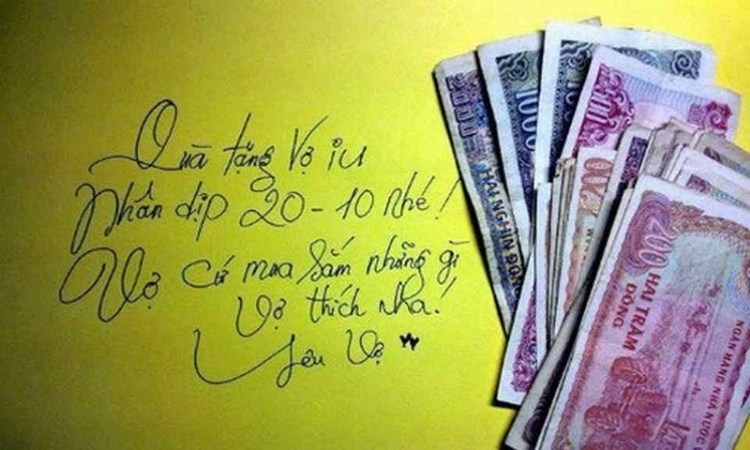 Quà tặng Vợ iu
Nhân dịp 20-10 nhé!
Vợ cứ mua sắm những gì
Vợ thích nha!
Yêu Vợ
2000
HAI NGHÌN ĐỒNG
1000
200 HAI TRĂM
ĐỒNG
NGÂN HÀNG NHÀ NƯỚC